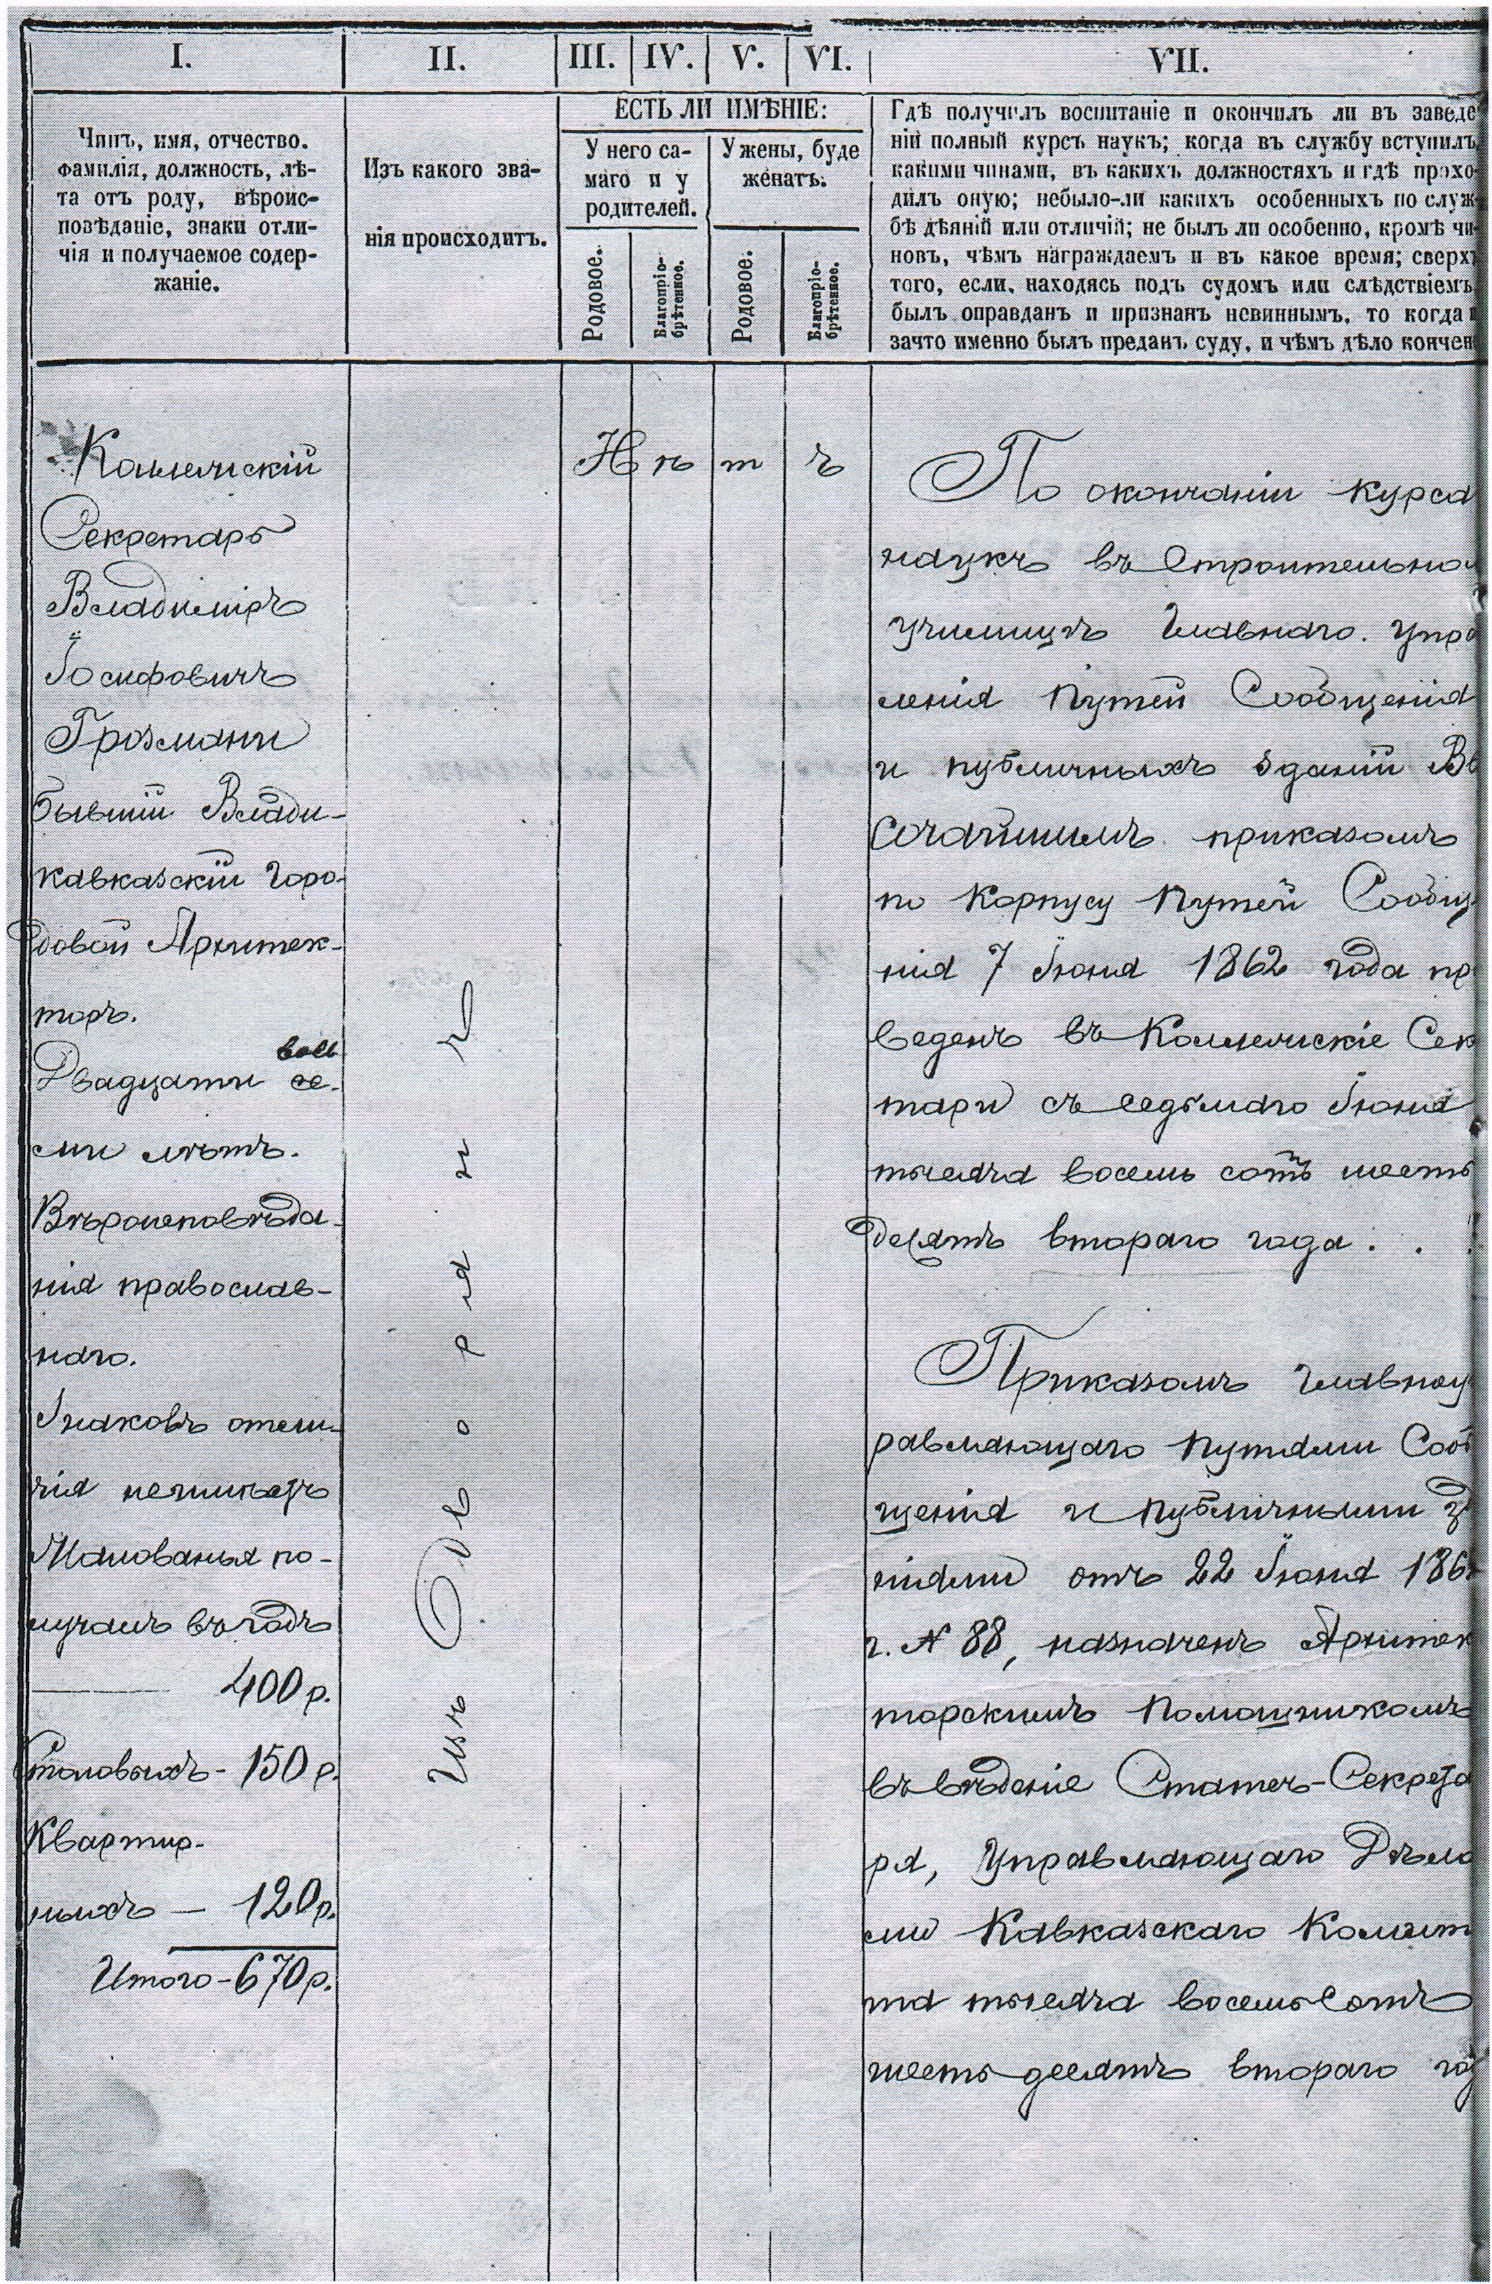 I. II. III. IV. V. VI. VII.
Чинъ, имя, отчество.
фамилія, должность, лѣ-
та отъ роду, вѣроис-
повѣданіе, знаки отли-
чія и получаемое содер-
жаніе.
Изъ какого зва-
нія происходитъ.
ЕСТЬ ЛИ ИМѢНІЕ:
У него са-
маго и у
родителей.
У жены, буде
женатъ.
Родовое.
Благопріо-
брѣтенное.
Родовое.
Благопріо-
брѣтенное.
Гдѣ получилъ воспитаніе и окончилъ ли въ заведе
ніи полный курсъ наукъ; когда въ службу вступилъ
какими чинами, въ какихъ должностяхъ и гдѣ прохо-
дилъ оную; небыло-ли какихъ особенныхъ по служ-
бѣ дѣяній или отличій; не былъ ли особенно, кромѣ чи-
новъ, чѣмъ награждаемъ и въ какое время; сверхъ
того, если, находясь подъ судомъ или слѣдствіемъ
былъ оправданъ и признанъ невиннымъ, то когда и
зачто именно былъ преданъ суду, и чѣмъ дѣло кончен
Коллежскій
Секретарь
Владиміръ
Іосифовичъ
Грозмани
бывшій Влади-
кавказскій Горо-
довой Архитек-
торъ.
вось
Двадцати се-
ми лѣтъ.
Вѣроисповѣда-
нія православ-
наго.
Знаковъ отли-
чія неимѣетъ
Жалованья по-
лучалъ въ годъ
400 р.
Столовыхъ - 150 р.
Квартир-
ныхъ — 120 р.
Итого - 670 р.
Изъ Дворянъ
Нѣтъ
По окончаніи курса
наукъ въ Строительно
училищѣ Главнаго Упра
ленія Путей Сообщенія
и публичныхъ зданій Вы
сочайшимъ приказомъ
по Корпусу Путей Сообще
нія 7 Іюня 1862 года пр
веденъ въ Коллежскіе Сек
тари съ седьмаго Іюня
тысяча восемь сотъ шесть
десятъ втораго года . . .
Приказомъ Главноу
равляющаго Путями Сооб
щенія и Публичными зд
ніями отъ 22 Іюня 1862
г. № 88, назначенъ Архитек
торскимъ Помощникомъ
въ вѣденіе Статсъ-Секрета
ря, Управляющаго Дѣла
ми Кавказскаго Комите
та тысяча восемьсотъ
шестьдесятъ втораго год